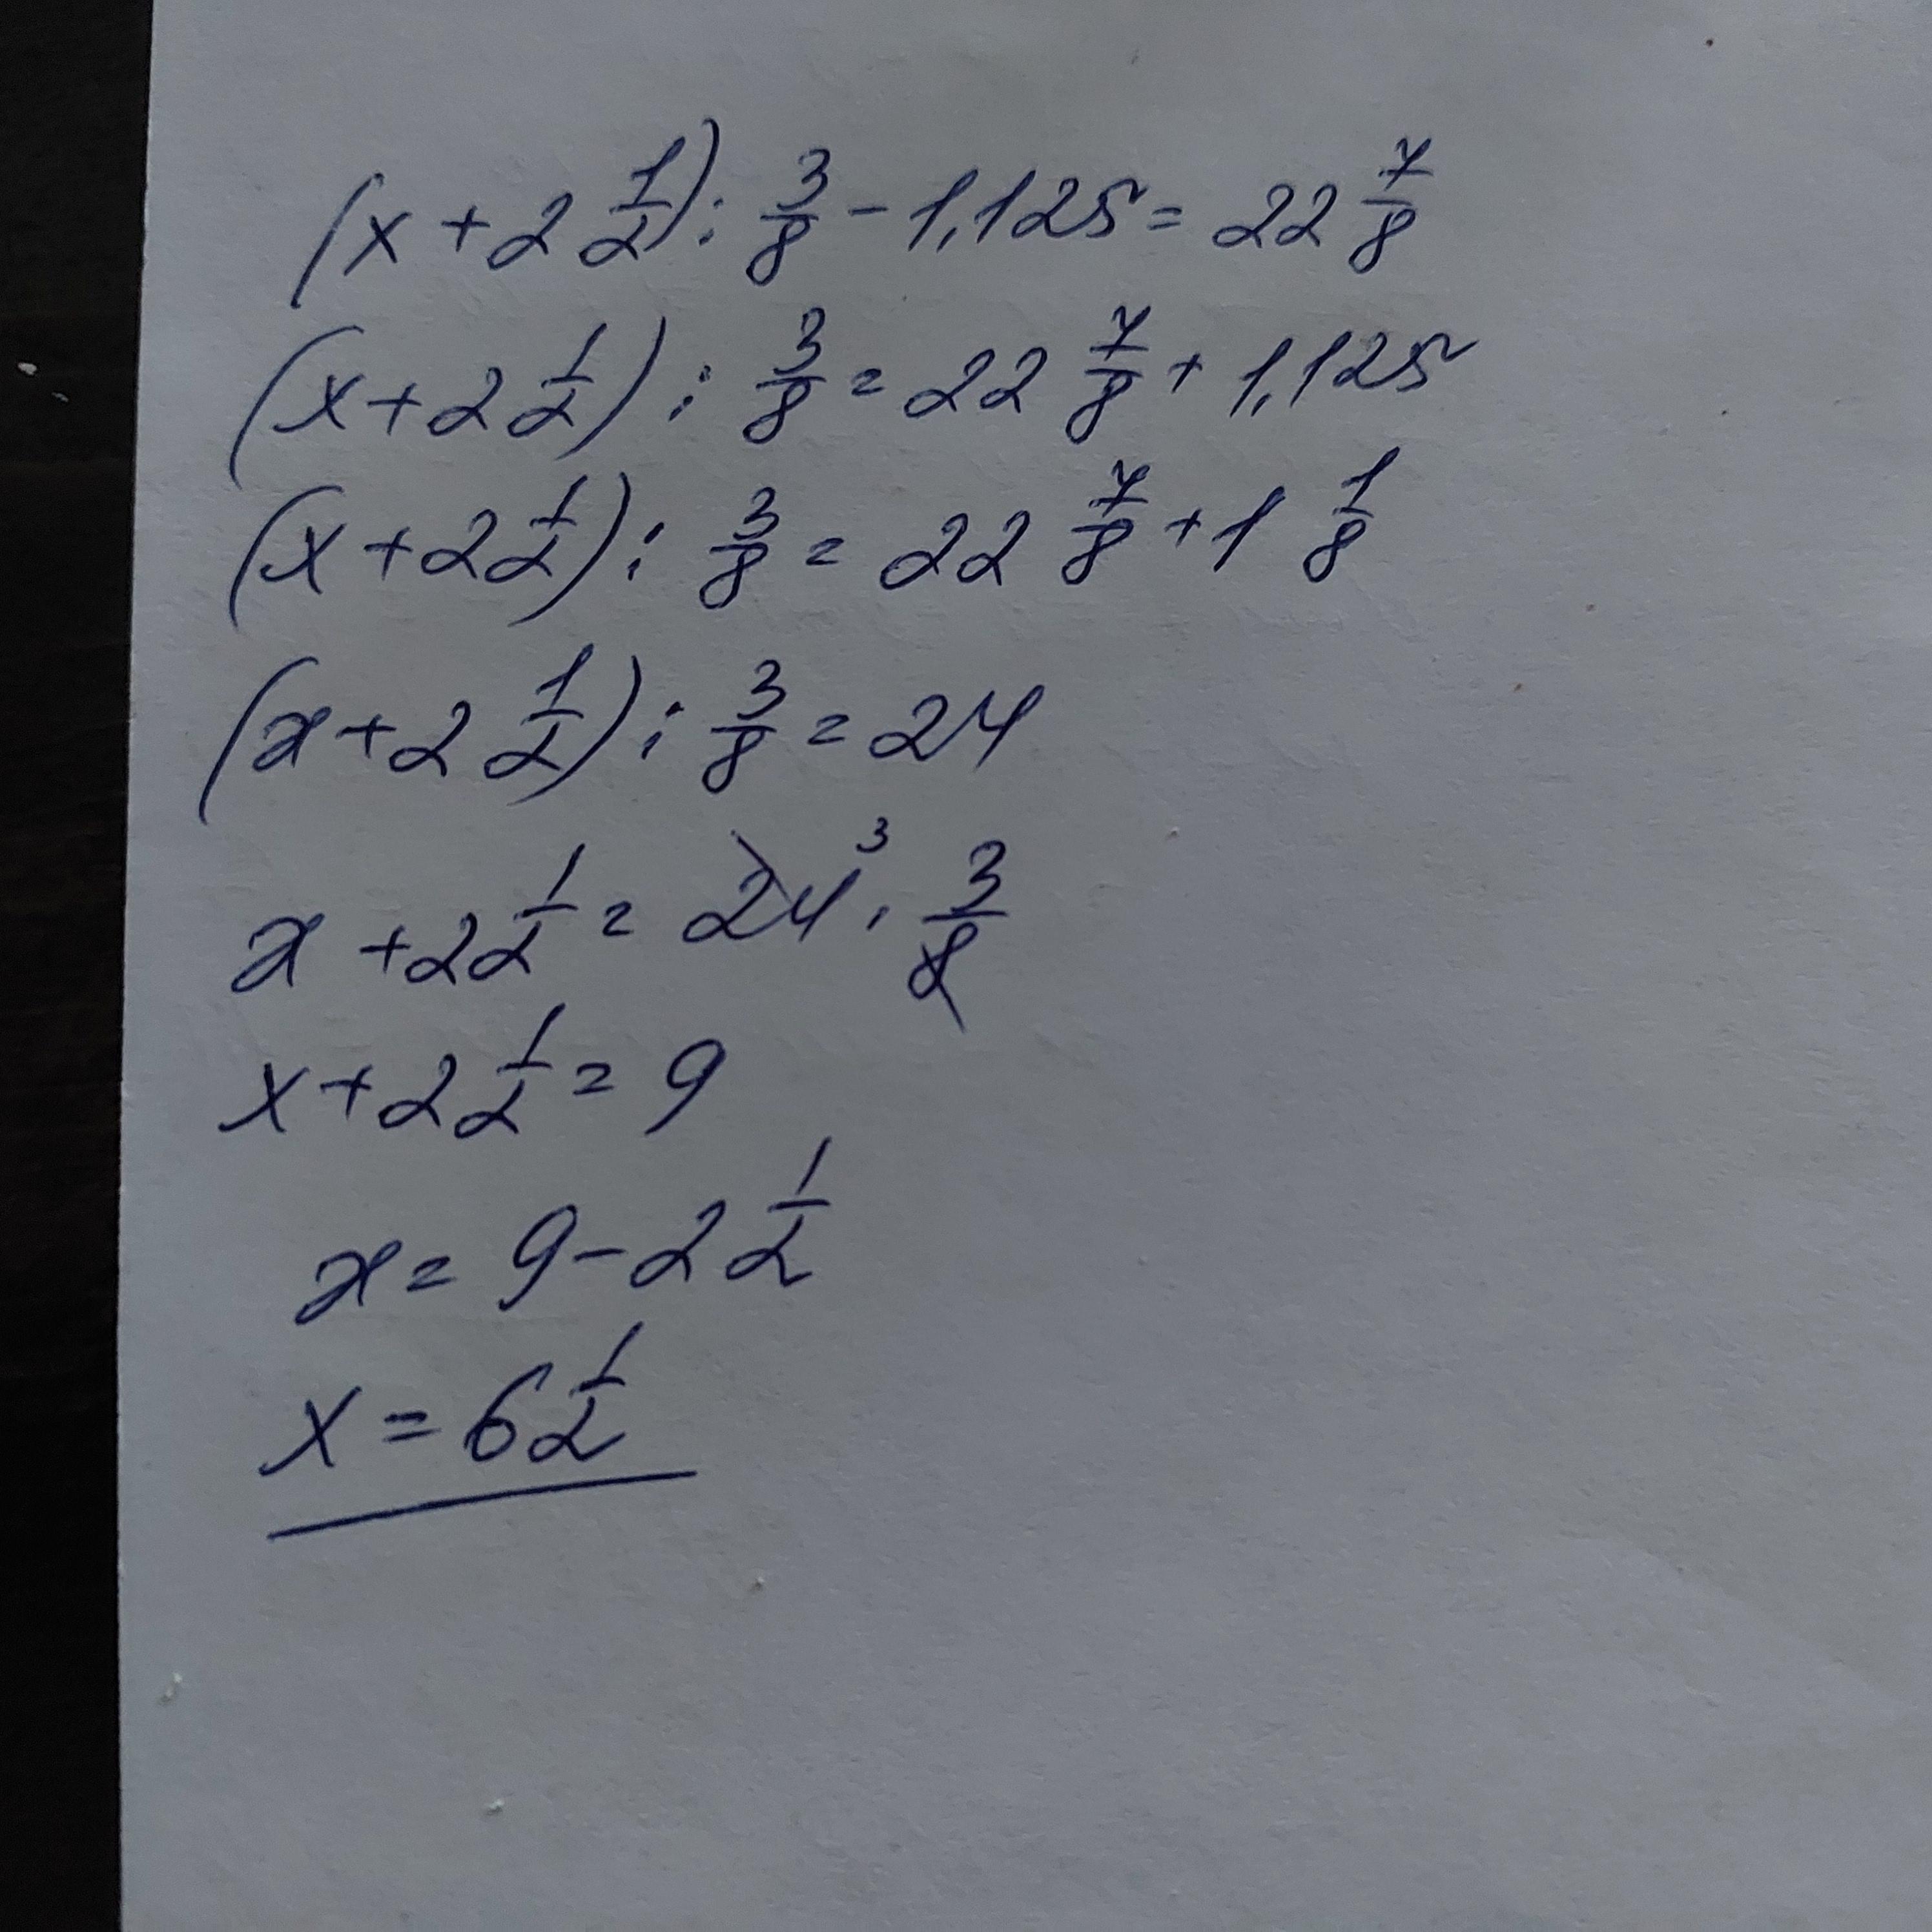 (x + 2 1/2) : 3/8 - 1,125 = 22 7/8
(x + 2 1/2) : 3/8 = 22 7/8 + 1,125
(x + 2 1/2) : 3/8 = 22 7/8 + 1 1/8
(x + 2 1/2) : 3/8 = 24
x + 2 1/2 = 24 3 · 3/8
x + 2 1/2 = 9
x = 9 - 2 1/2
x = 6 1/2